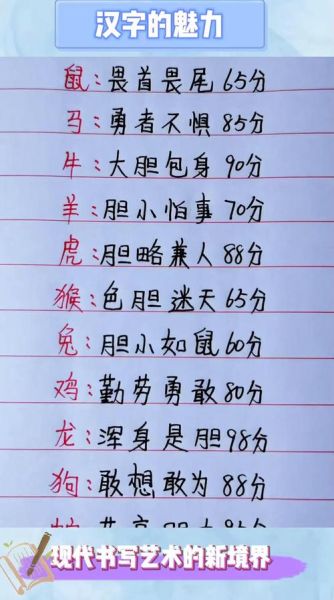 汉字的魅力
鼠:畏首畏尾65分
马:勇者不惧85分
牛:大胆包身90分
羊:胆小怕事70分
虎:胆略兼人88分
猴:色胆迷天65分
兔:胆小如鼠60分
鸡:勤劳勇敢80分
龙:浑身是胆98分
狗:敢想敢为88分
现代书写艺术的新境界